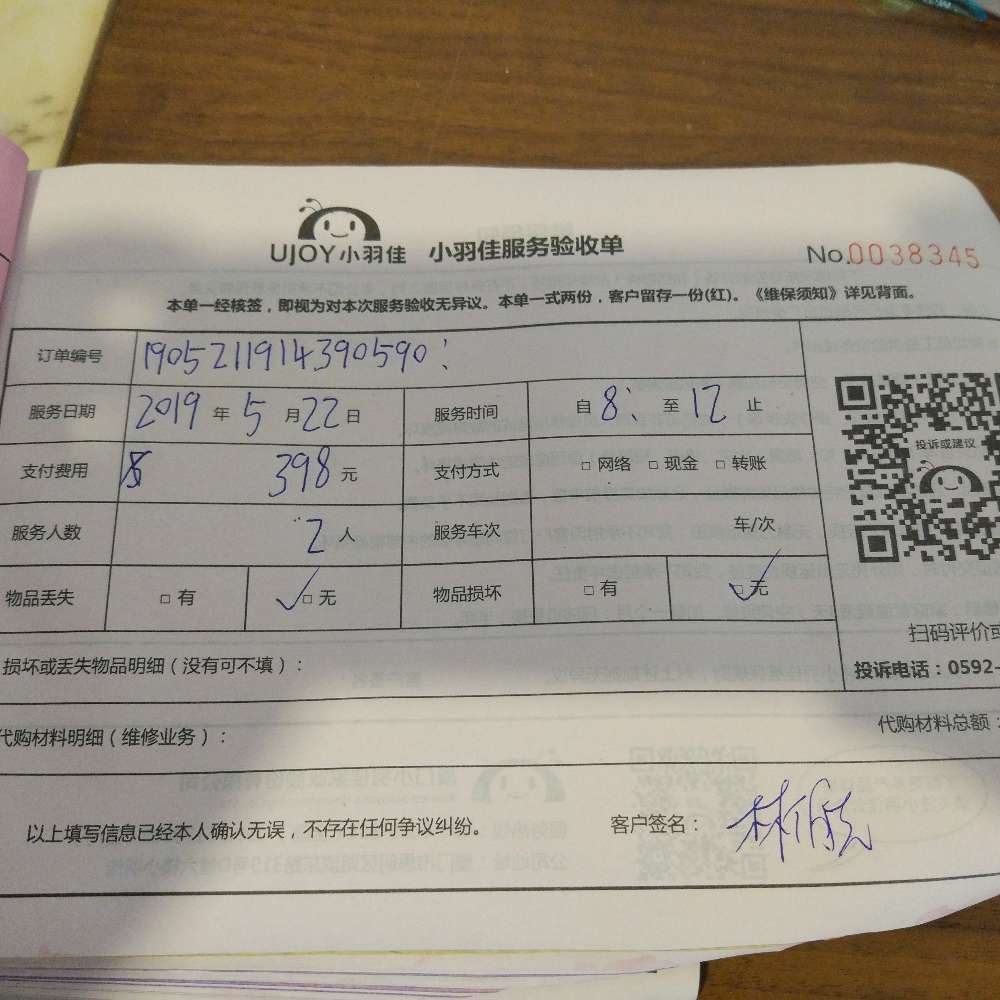 UJOY小羽佳 小羽佳服务验收单 No.0038345
本单一经核签，即视为对本次服务验收无异议。本单一式两份，客户留存一份(红)。《维保须知》详见背面。
订单编号 1905211914390590
服务日期 2019 年 5 月 22 日 服务时间 自 8: 至 12 止
支付费用 398 元 支付方式 □ 网络 □ 现金 □ 转账
投诉或建议
服务人数 2 人 服务车次 车/次
物品丢失 □ 有 ✓□ 无 物品损坏 □ 有 ✓□ 无
扫码评价或
损坏或丢失物品明细（没有可不填）：
投诉电话：0592-
代购材料明细（维修业务）：
代购材料总额：
以上填写信息已经本人确认无误，不存在任何争议纠纷。 客户签名：林